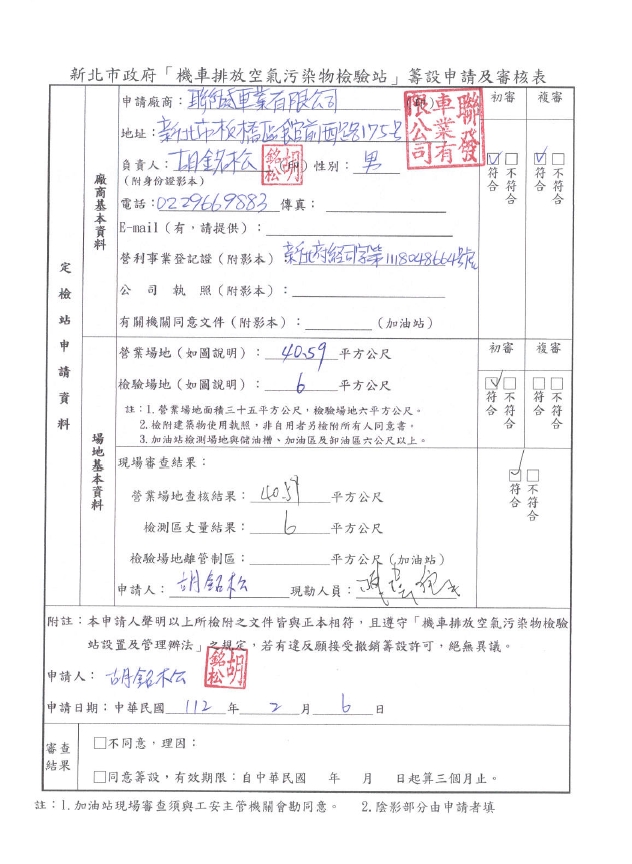 新北市政府「機車排放空氣污染物檢驗站」籌設申請及審核表
定檢站申請資料
廠商基本資料
申請廠商：聯發車業有限公司 (印)
聯發車業有限公司
地址：新北市板橋區館前西路175號
負責人：胡銘松 (印) 性別：男
胡銘松
(附身份證影本)
電話：0229669883 傳真：
E-mail（有，請提供）：
營利事業登記證（附影本）新北府經司字第1118048664號
公司執照（附影本）：
有關機關同意文件（附影本）： （加油站）
初審 複審
☑符合 □不符合 ☑符合 □不符合
場地基本資料
營業場地（如圖說明）：40.59 平方公尺
檢驗場地（如圖說明）：6 平方公尺
註：1.營業場地面積三十五平方公尺，檢驗場地六平方公尺。
2.檢附建築物使用執照，非自用者另檢附所有人同意書。
3.加油站檢測場地與儲油槽、加油區及卸油區六公尺以上。
初審 複審
☑符合 □不符合 □符合 □不符合
現場審查結果：
營業場地查核結果：40.59 平方公尺
檢測區丈量結果：6 平方公尺
檢驗場地離管制區： 平方公尺（加油站）
申請人：胡銘松 現勘人員：
☑符合 □不符合
附註：本申請人聲明以上所檢附之文件皆與正本相符，且遵守「機車排放空氣污染物檢驗
站設置及管理辦法」之規定，若有違反願接受撤銷籌設許可，絕無異議。
申請人：胡銘松
胡銘松
申請日期：中華民國 112 年 2 月 6 日
審查結果
□不同意，理由：
□同意籌設，有效期限：自中華民國 年 月 日起算三個月止。
註：1.加油站現場審查須與工安主管機關會勘同意。 2.陰影部分由申請者填